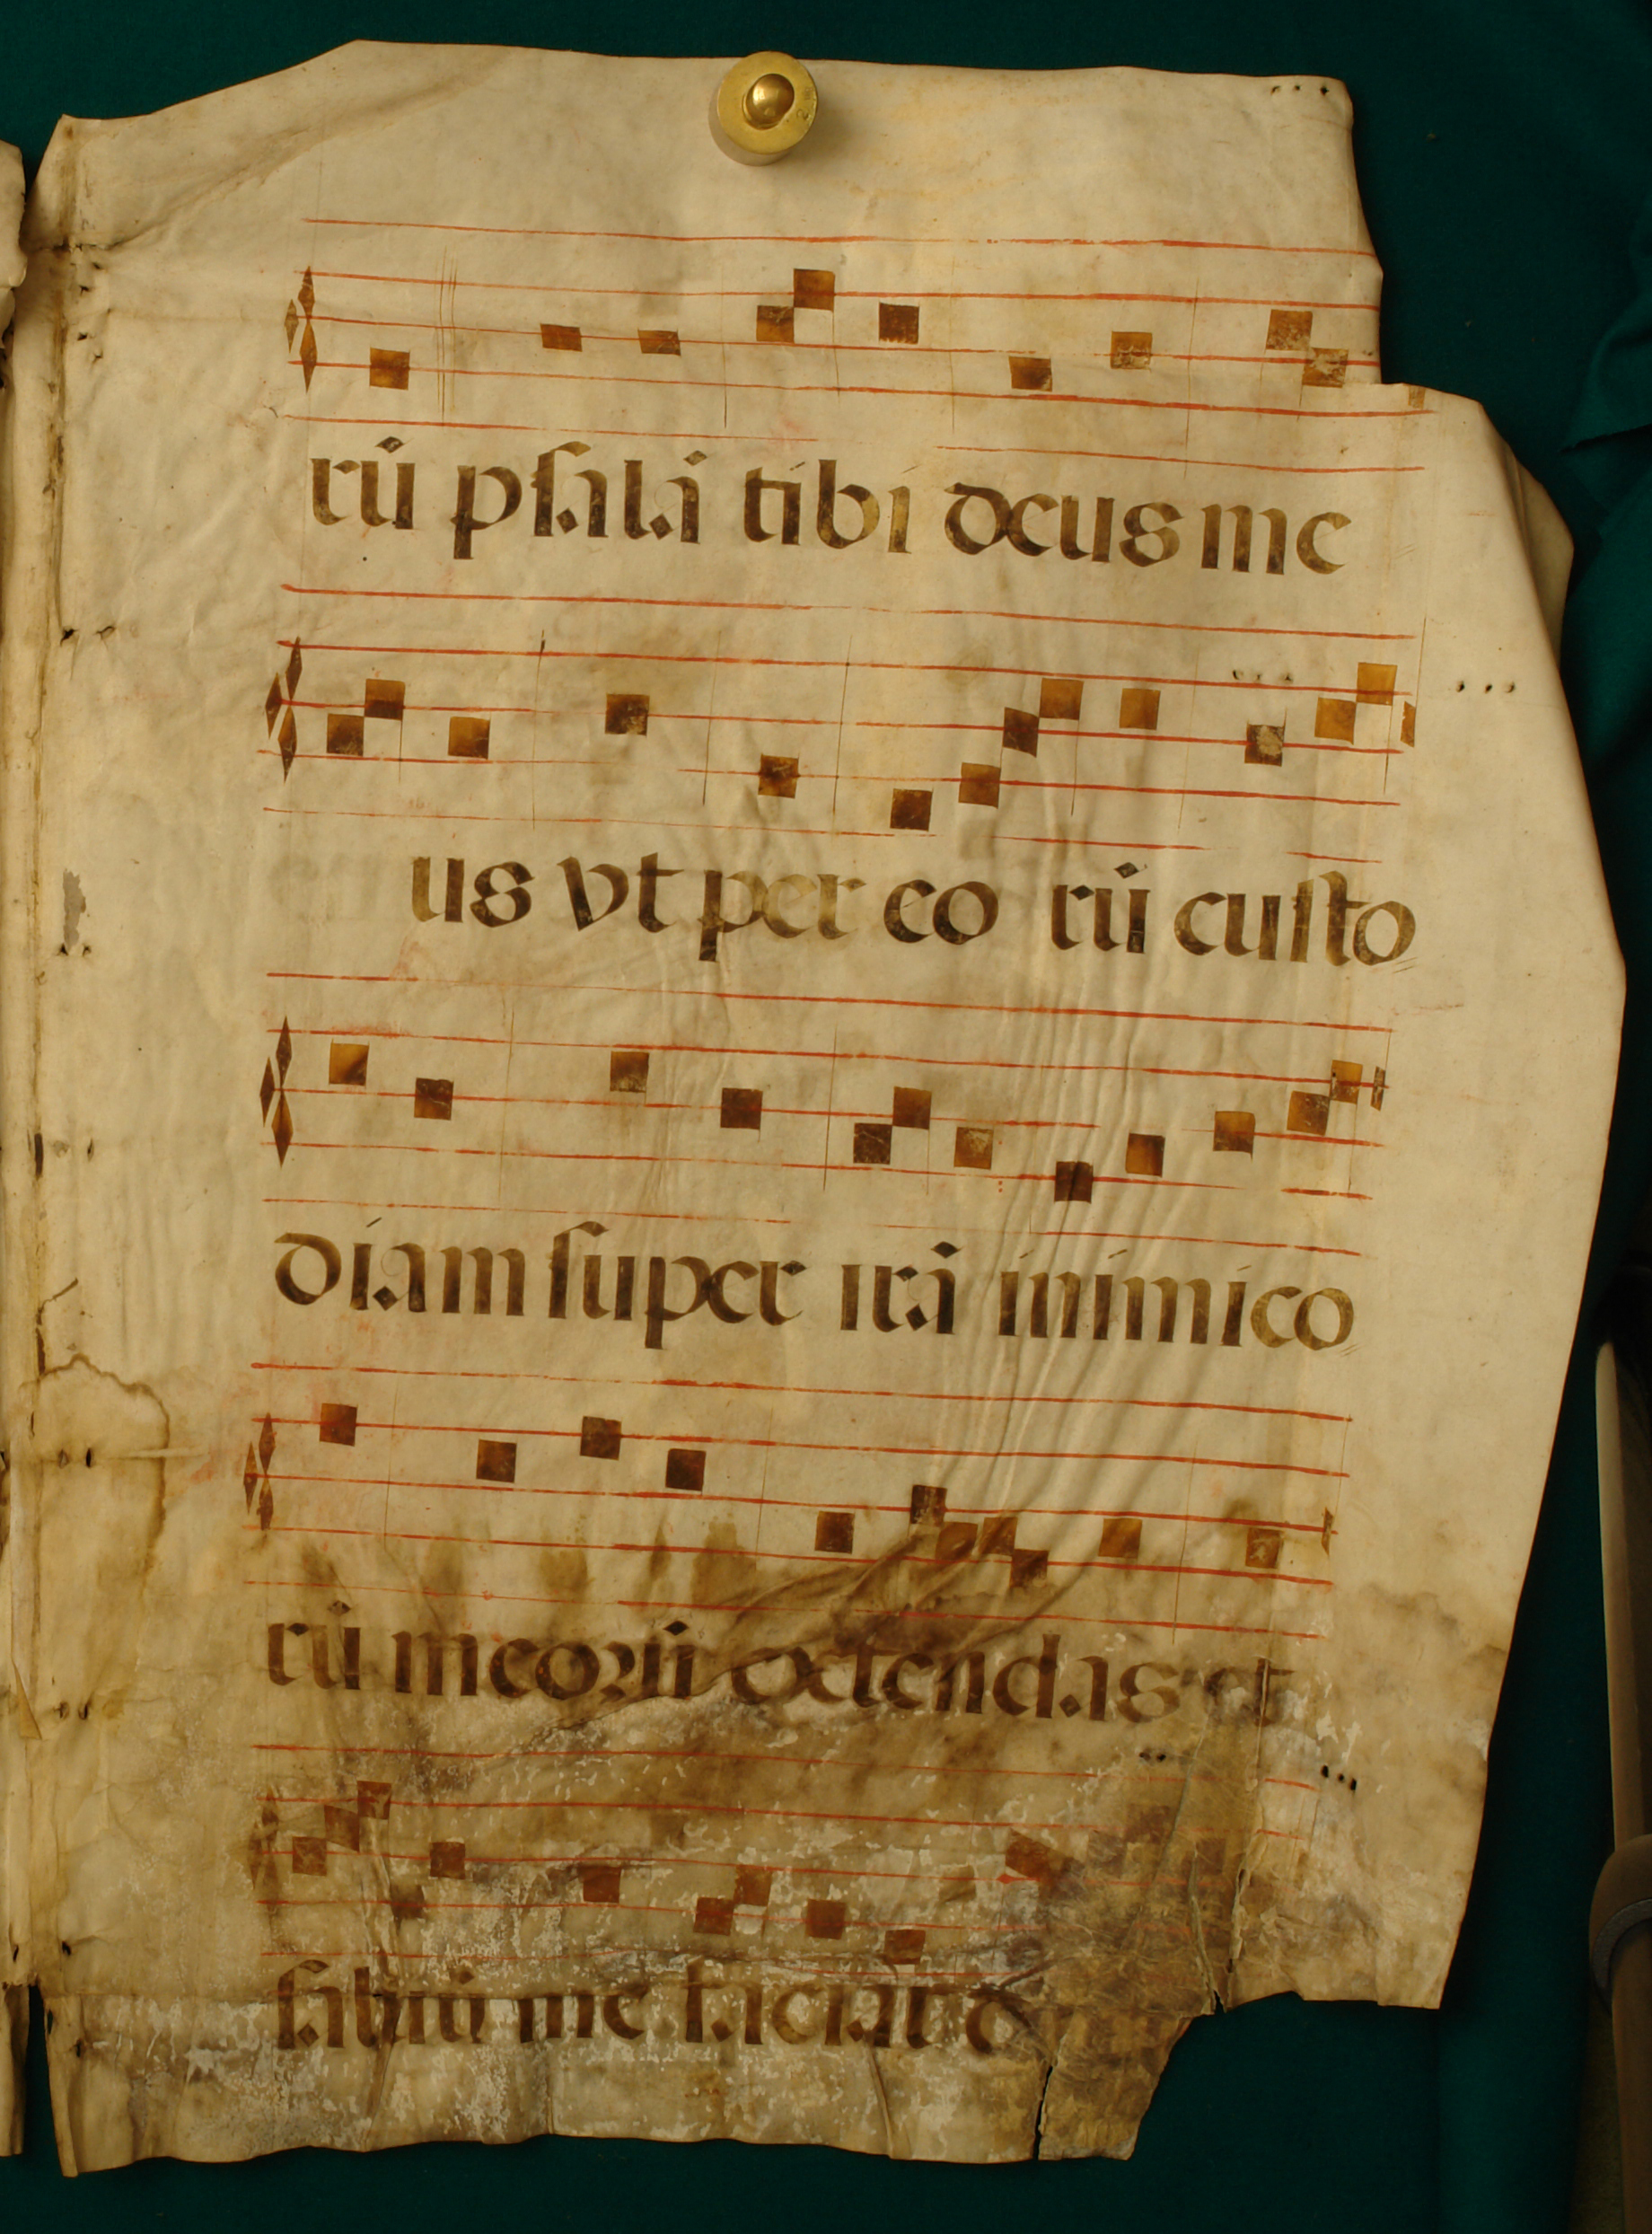 rū psalā tibi deus me
us vt per eo rū custo
diam super irā inimico
rū meoꝝū extendas et
saluū me faciat d